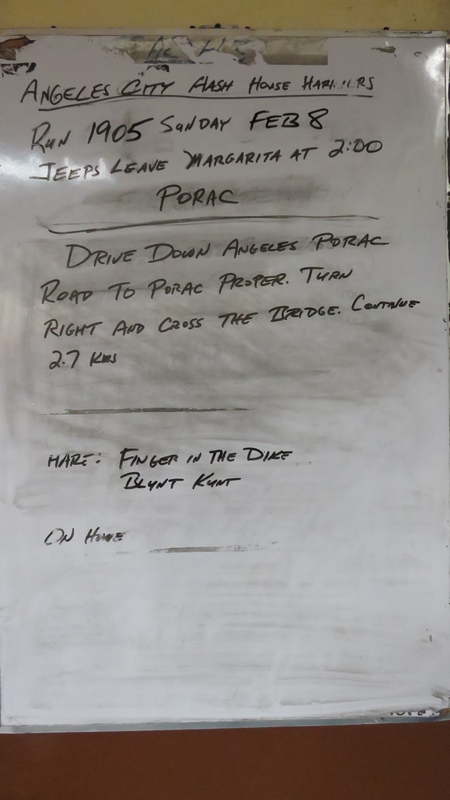 ANGELES CITY HASH HOUSE HARRIERS
RUN 1905 SUNDAY FEB 8
JEEPS LEAVE MARGARITA AT 2:00
PORAC
DRIVE DOWN ANGELES PORAC
ROAD TO PORAC PROPER. TURN
RIGHT AND CROSS THE BRIDGE. CONTINUE
2.7 KMS
HARE: FINGER IN THE DIKE
BLYNT KUNT
ON HOME